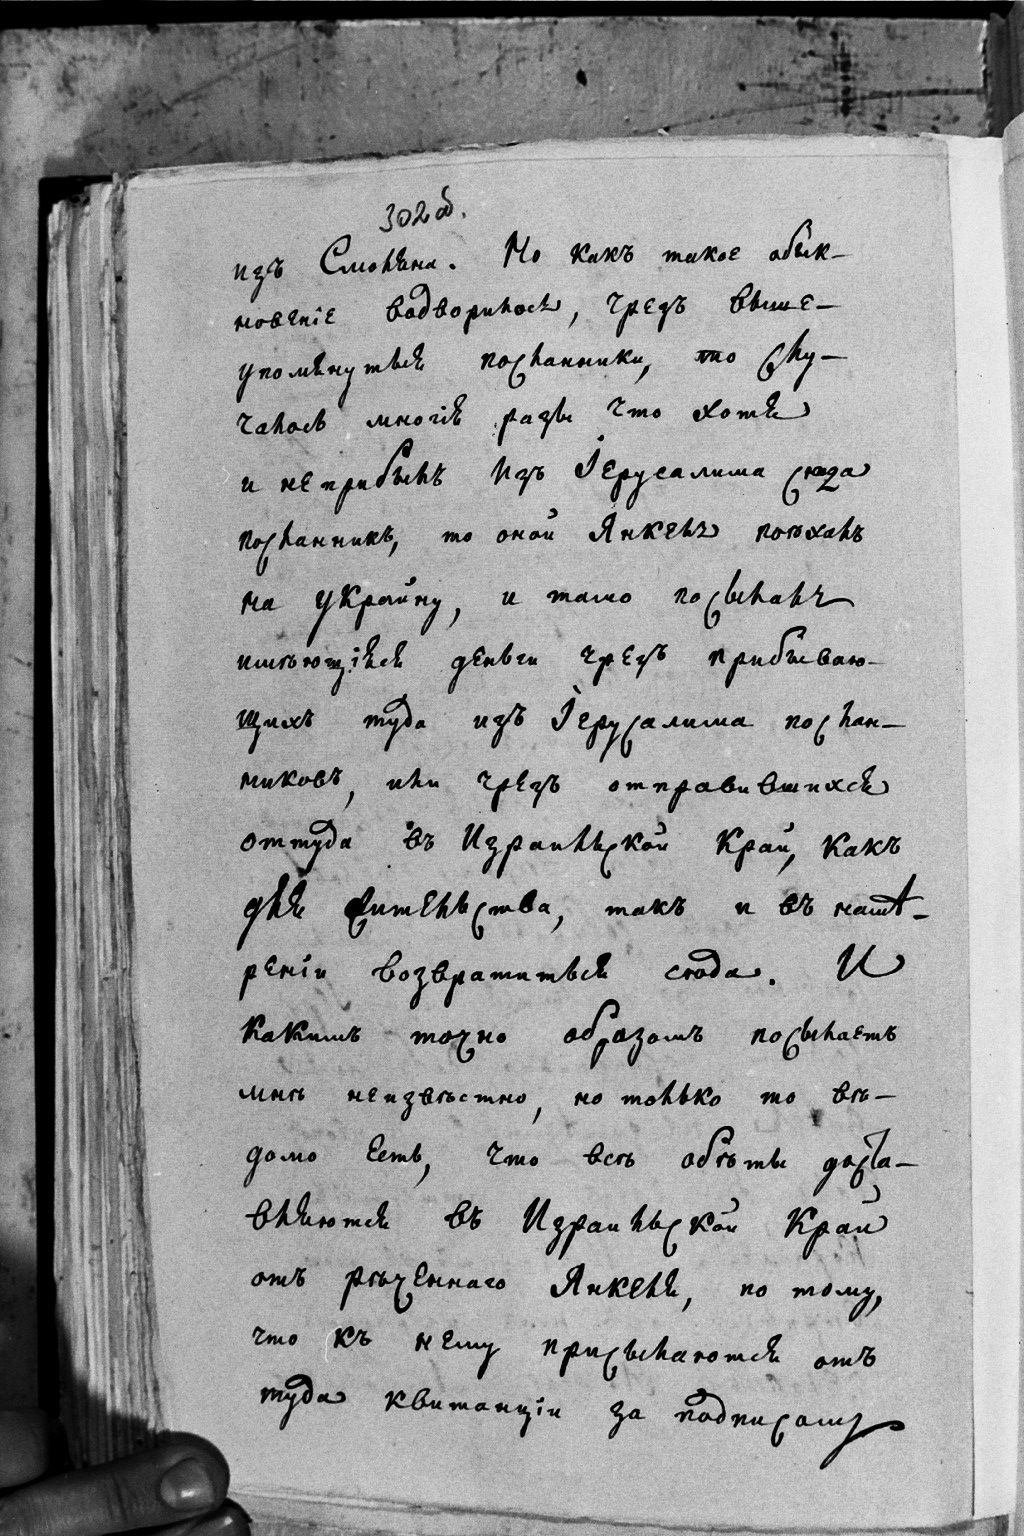 302 об.
изъ Смольяна. Но какъ такое обык-
новеніе водворилось, чрезъ выше-
упомянутыя посланники, то слу-
чалось многія разы что хотя
и не прибылъ изъ Іерусалима сюда
посланникъ, то оной Янкель поѣхалъ
на украйну, и тамо посылалъ
имѣющіяся деньги чрезъ прибываю-
щихъ туда изъ Іерусалима послан-
никовъ, или чрезъ отправившихся
оттуда въ Израильской Край, какъ
для жительства, такъ и въ намѣ-
реніи возвратиться сюда. И
какимъ точно образомъ посылаетъ
мнѣ неизвѣстно, но только то вѣ-
домо есть, что всѣ обѣты доста-
вляются въ Израильской Край
отъ рѣченнаго Янкеля, по тому,
что къ нему присылаются отъ
туда квитанціи за подписомъ